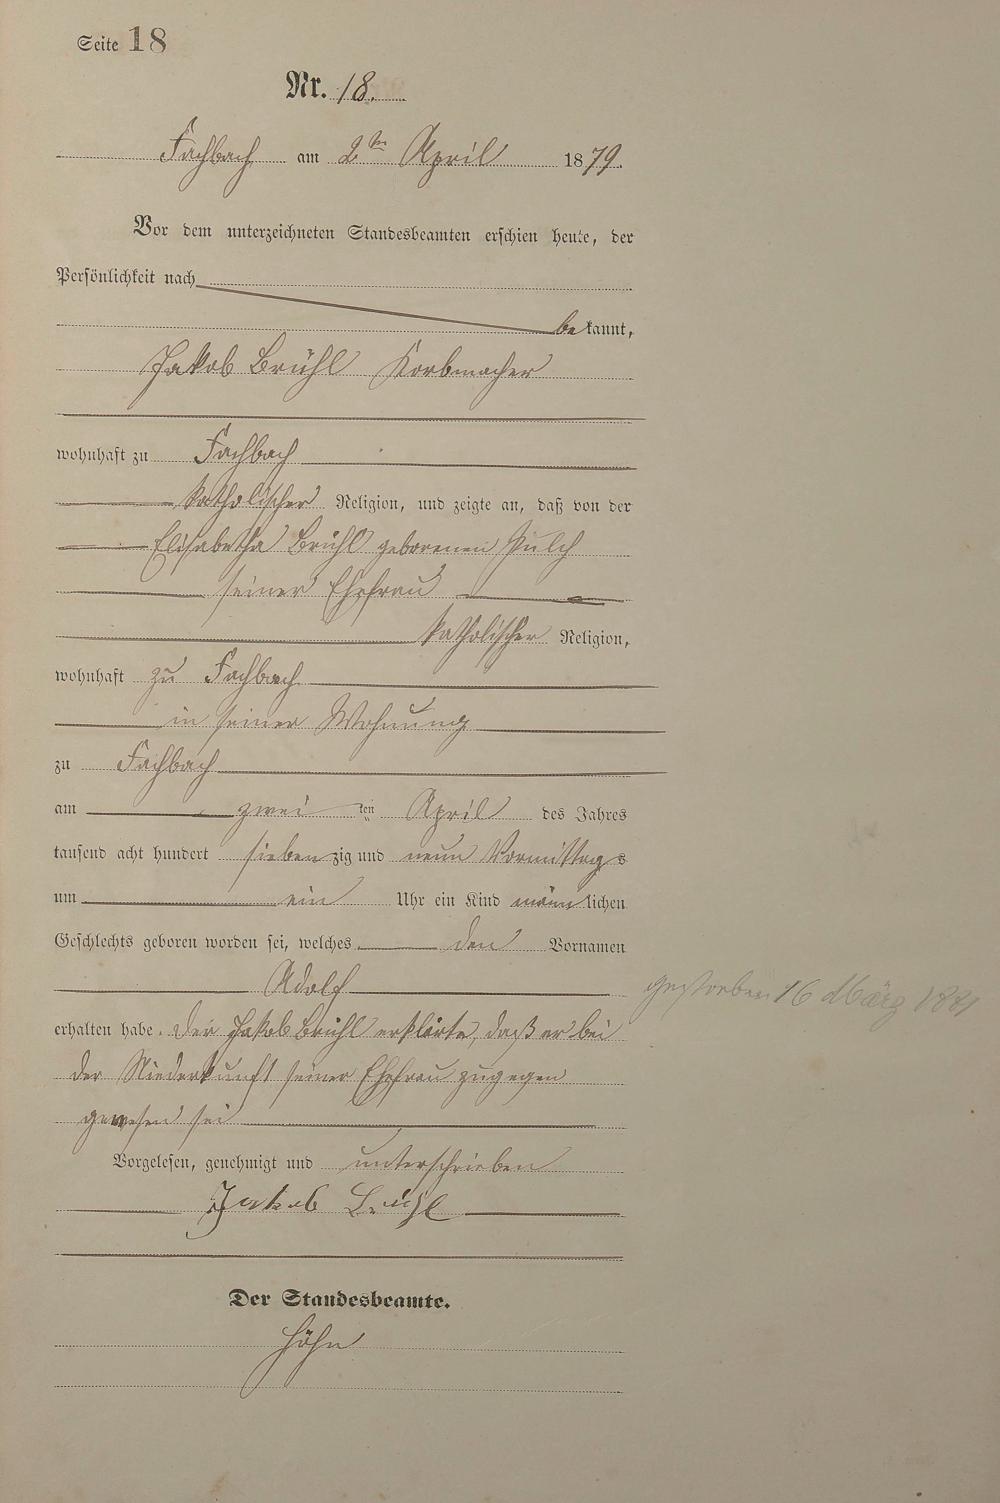 Seite 18
Nr. 18.
Fachbach am 2ten April 1879.
Vor dem unterzeichneten Standesbeamten erschien heute, der
Persönlichkeit nach
bekannt,
Jakob Brühl Korbmacher
wohnhaft zu Fachbach
katholischer Religion, und zeigte an, daß von der
Elisabetha Brühl geborenen Pulch
seiner Ehefrau
katholischer Religion,
wohnhaft zu Fachbach
in seiner Wohnung
zu Fachbach
am zwei ten April des Jahres
tausend acht hundert siebenzig und neun Vormittags
um ein Uhr ein Kind männlichen
Geschlechts geboren worden sei, welches den Vornamen
Adolf
gestorben 16 März 1881
erhalten habe. Der Jakob Brühl erklärte, daß er bei
der Niederkunft seiner Ehefrau zugegen
gewesen sei
Vorgelesen, genehmigt und unterschrieben
Jakob Brühl
Der Standesbeamte.
Höhn